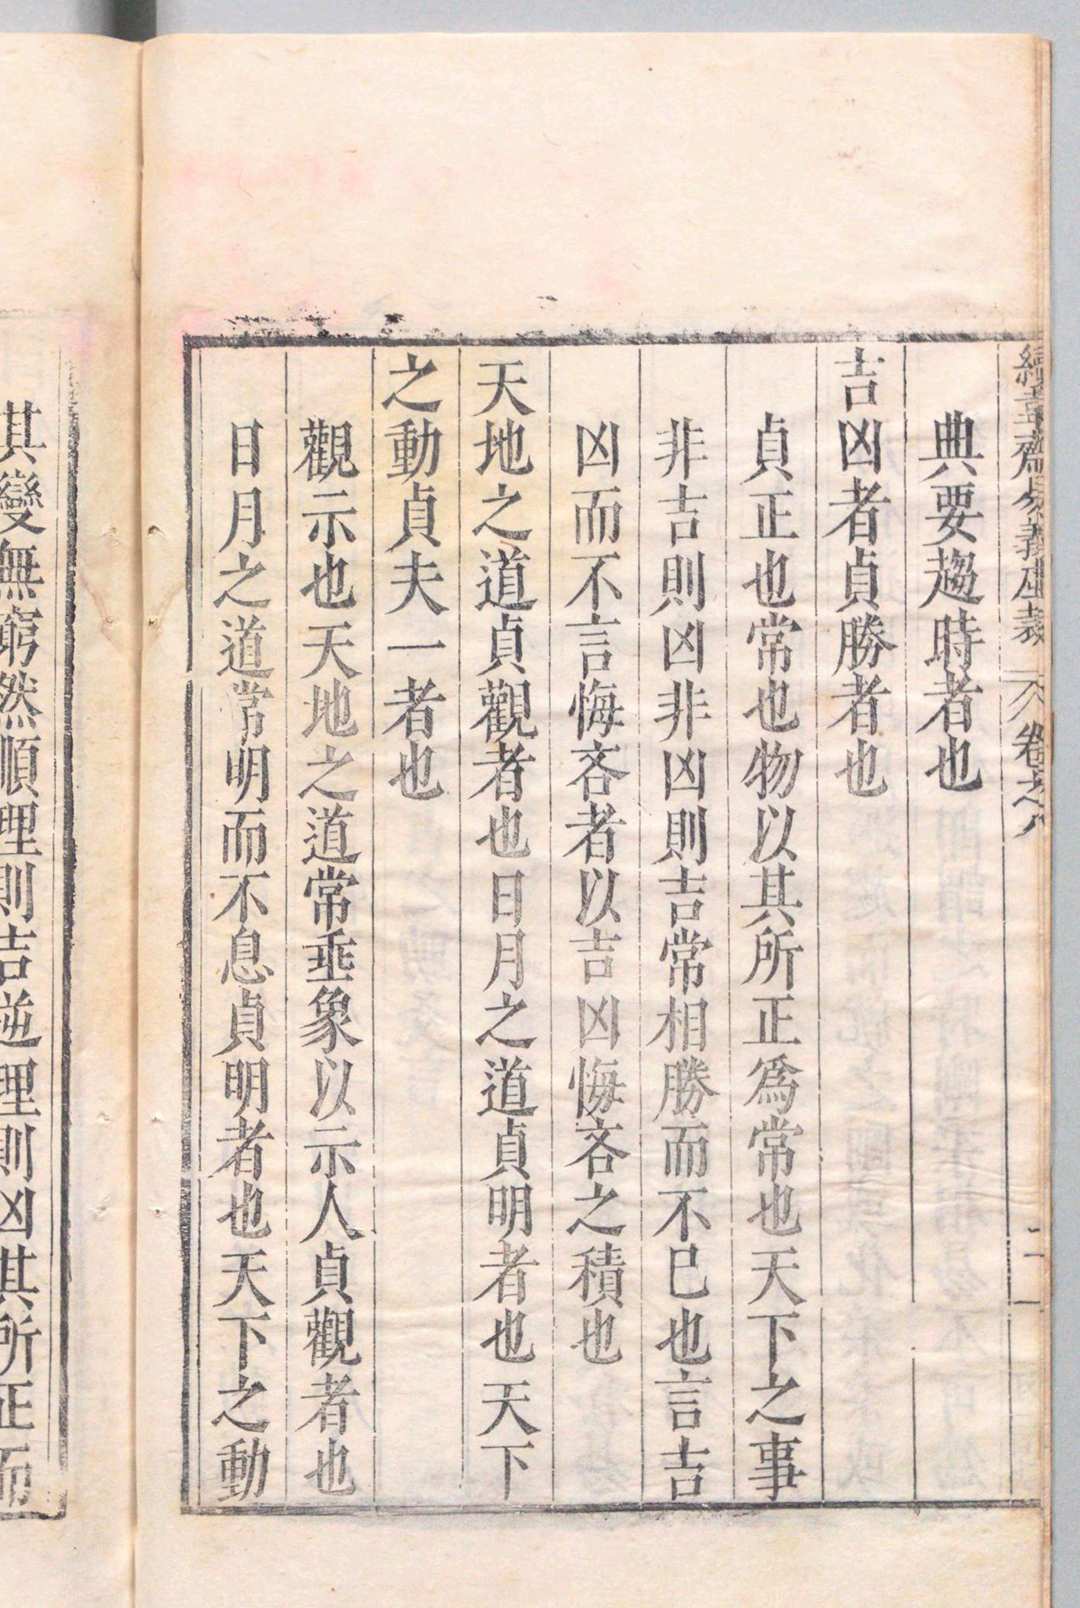 卷之八
二
典要趨時者也
吉凶者貞勝者也
貞正也常也物以其所正爲常也天下之事
非吉則凶非凶則吉常相勝而不已也言吉
凶而不言悔吝者以吉凶悔吝之積也
天地之道貞觀者也日月之道貞明者也天下
之動貞夫一者也
觀示也天地之道常垂象以示人貞觀者也
日月之道常明而不息貞明者也天下之動
其變無窮然順理則吉逆理則凶其所正而